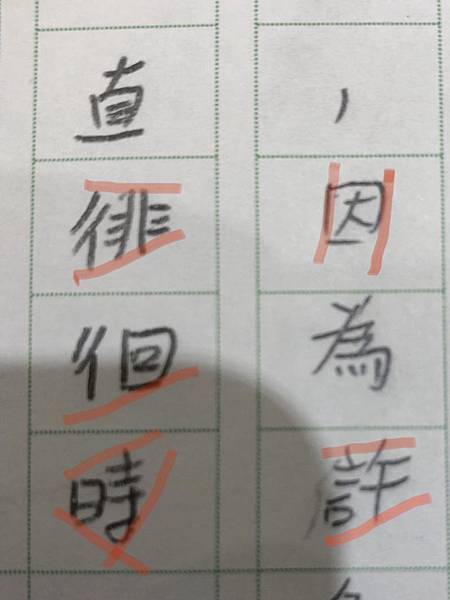 ，因為許
直徘徊時